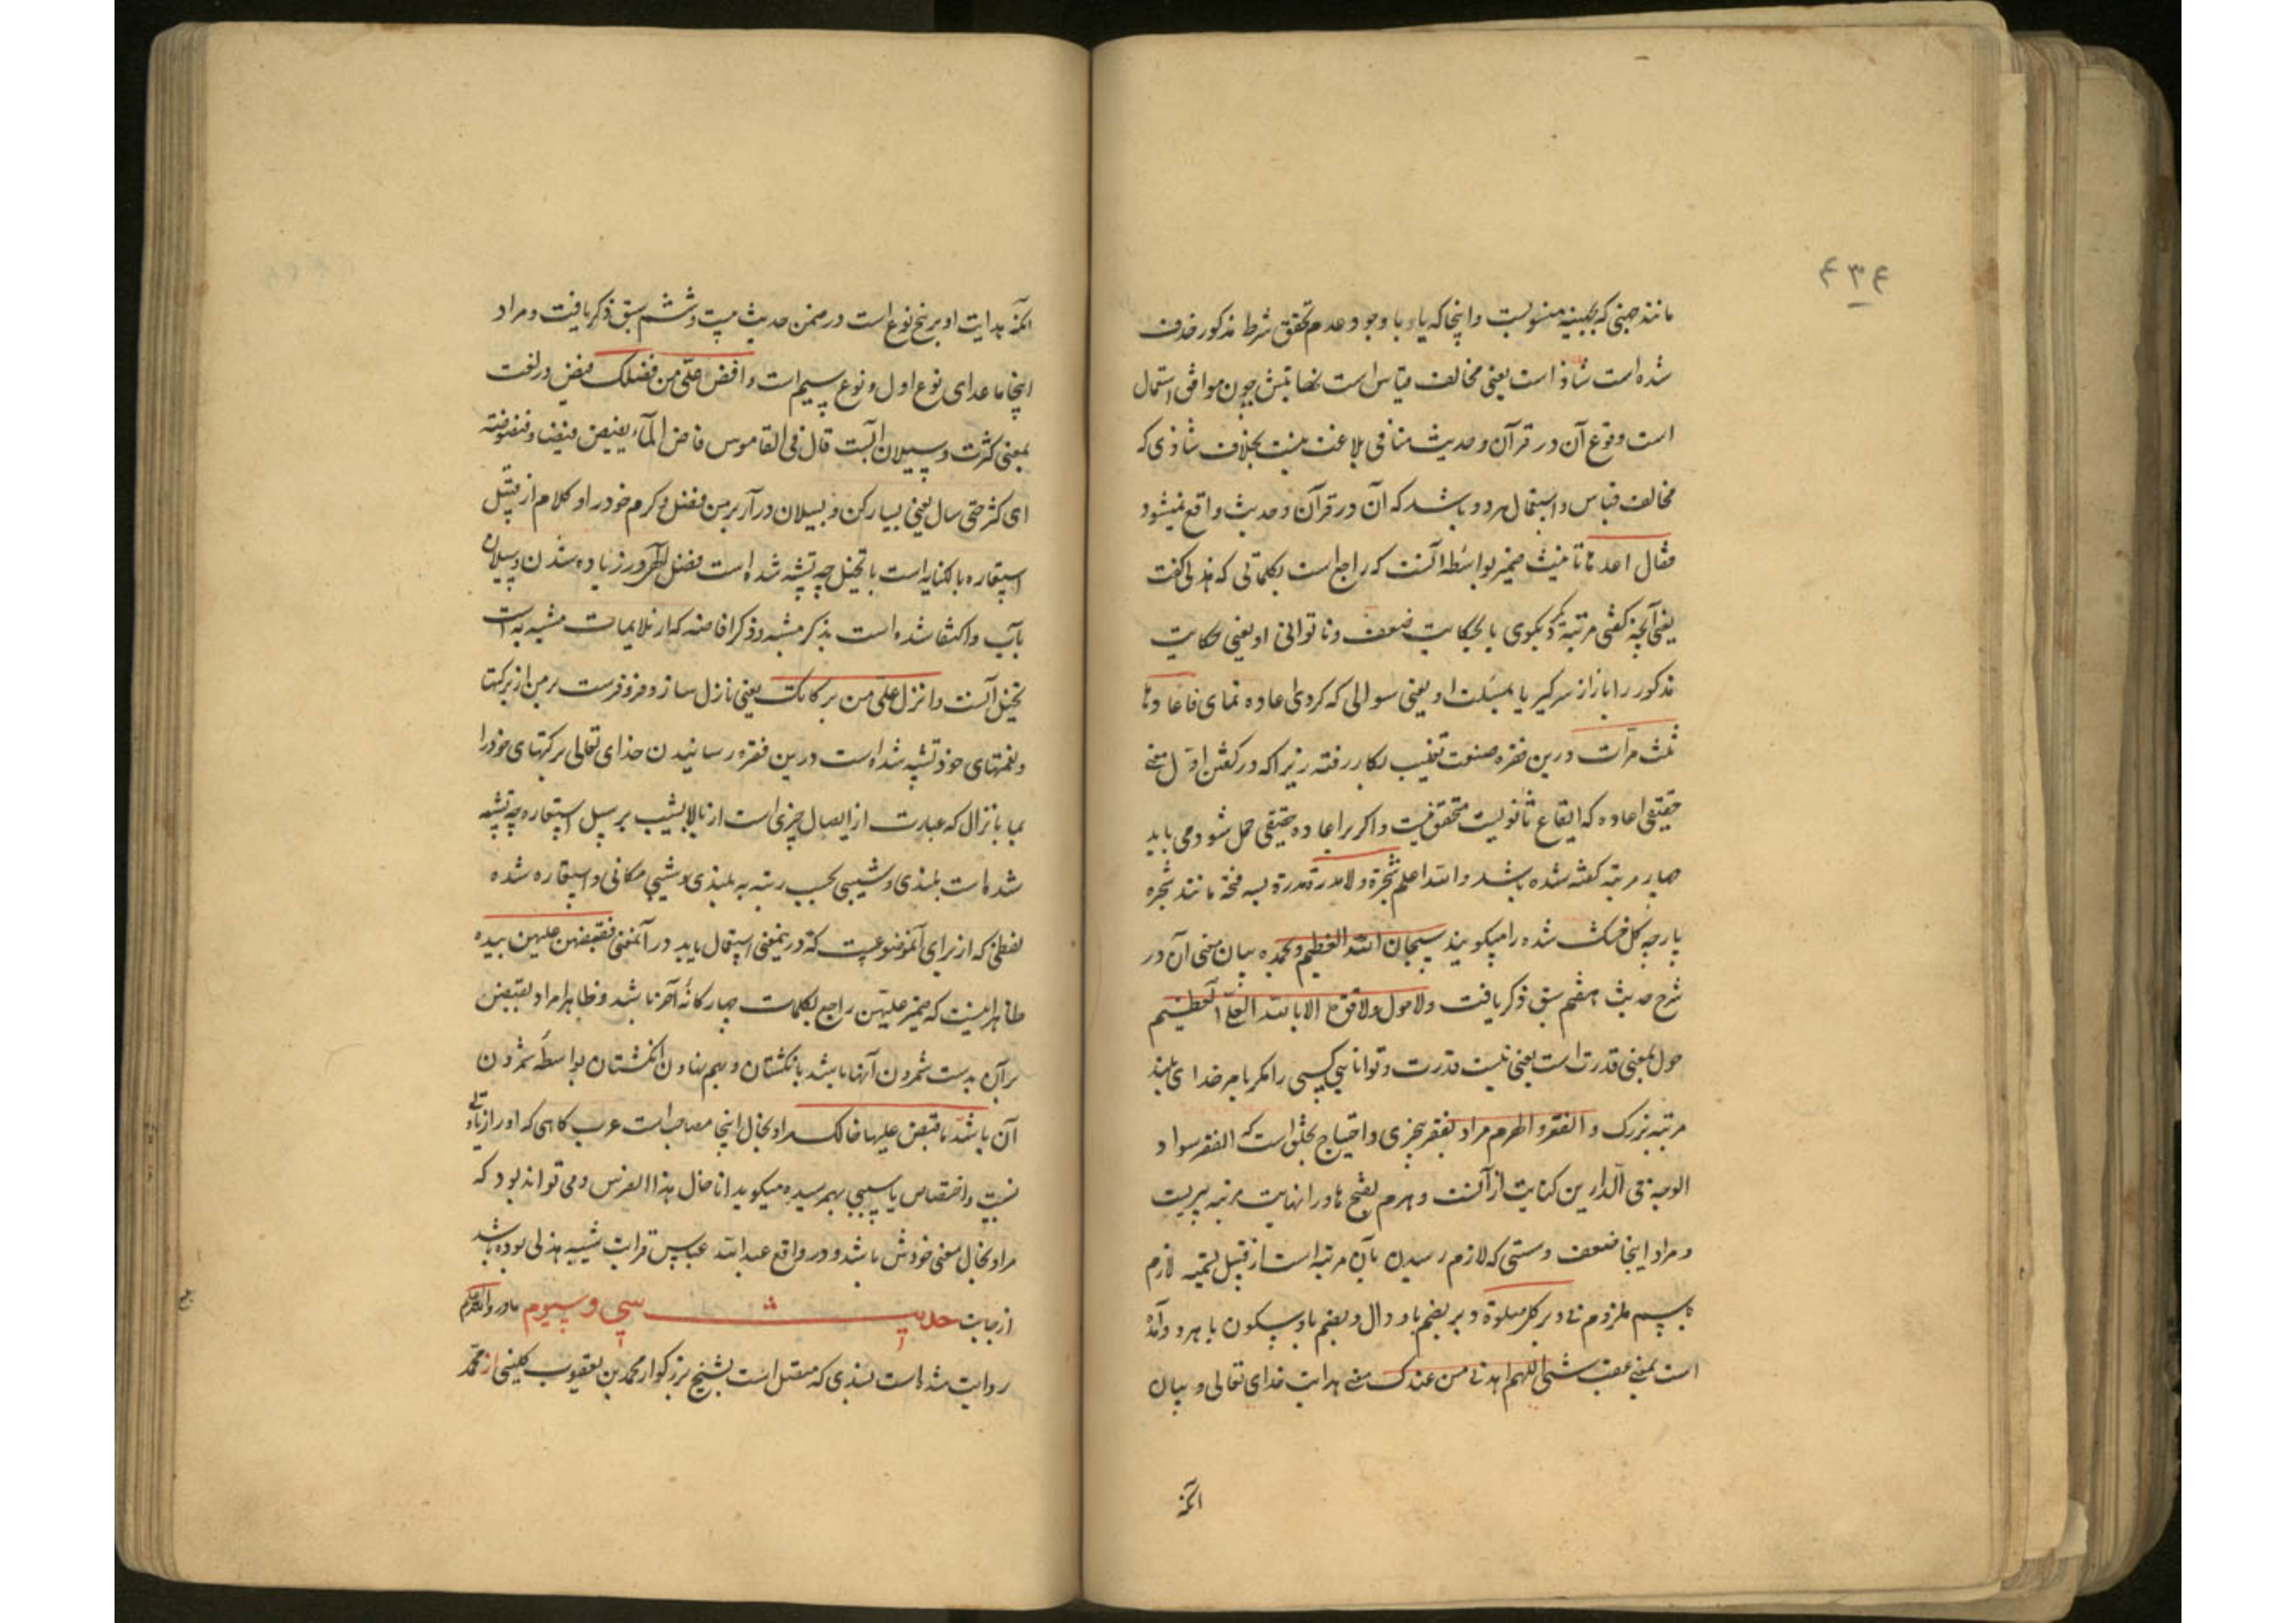 ۴۳۴
مانند جهنی که بجهینه منسوبست و اینجا که یا و با وجود عدم تحقق شرط مذکور حذف
شده است شاذ است یعنی مخالف قیاس است نهایتش چون موافق استمال
است وقوع آن در قرآن و حدیث منافی بلاغت نیست بخلاف شاذی که
مخالف قیاس و استعمال هر دو باشد که آن در قرآن و حدیث واقع نمیشود
فقال اعدها تانیث ضمیر بواسطه آنست که راجع است بکلماتی که هذلی گفت
یعنی آنچه گفتی مرتبه دیگر بکوی یا بحکایت ضعف و ناتوانی او یعنی حکایت
مذکور را باز از سر گیر یا بمسئلت او یعنی سوالی که کردی اعاده نمای فاعادها
ثلث مرات درین فقره صنعت تغلیب بکار رفته زیرا که در گفتن اول معنی
حقیقی اعاده که ایقاع ثانویست متحقق نیست و اگر بر اعاده حقیقی حمل شود می باید
چهار مرتبه گفته شده باشد و الله اعلم شجرة ولا مدرة مدرة بسه فتحه مانند شجره
پارچه کل خشک شده را میکویند سبحان الله العظیم وبحمده بیان معنی آن در
شرح حدیث هفتم سبق ذکر یافت ولا حول ولا قوة الا بالله العلی العظیم
حول بمعنی قدرت است یعنی نیست قدرت و توانایی کسی را مکر بامر خدای بلند
مرتبه بزرک و الفقر و الهرم مراد بفقر بیچیزی و احتیاج بخلق است که الفقر سواد
الوجه فی الدارین کنایت از آنست و هرم بفتح ها و را نهایت مرتبه پیریست
و مراد اینجا ضعف و سستی که لازم رسیدن بآن مرتبه است از قبیل تسمیه لازم
باسم ملزوم فی دبر کل صلوة دبر بضم با و دال و بضم با و سکون با هر دو آمده
است بمعنی عقب شی اللهم اهدنی من عندک معنی هدایت خدای تعالی و بیان
آنکه
آنکه هدایت او بر پنج نوع است در ضمن حدیث بیست و ششم سبق ذکر یافت و مراد
اینجا ما عدای نوع اول و نوع سیم است و افض علی من فضلک فیض در لغت
بمعنی کثرت و سیلان آبست قال فی القاموس فاض الماء یفیض فیضا و فیضوضته
ای کثر حتی سال یعنی بسیار کن و بسیلان در آر بر من فضل و کرم خود را و کلام از قبیل
استعاره بالکنایه است با تخییل چه تشبیه شده است فضل الهی در زیاده شدن و سیلان
بآب و اکتفا شده است بذکر مشبه و ذکر افاضه که از ملایمات مشبه به است
تخییل آنست و انزل علی من برکاتک یعنی نازل ساز و فرو فرست بر من از برکتها
و نعمتهای خود تشبیه شده است درین فقره رسانیدن خدای تعالی برکتهای خود را
بما بانزال که عبارت از ایصال چیزی است از بالا بشیب بر سبیل استعاره چه تشبیه
شده است بلندی و شیبی بحسب رتبه به بلندی و شیبی مکانی و استعاره شده
لفظی که از برای آن موضوعست که درین معنی استعمال یابد در آن معنی فقبضهن علیهن بیده
ظاهر اینست که ضمیر علیهن راجع بکلمات چهارکانه آخر باشد و ظاهرا مراد بقبض
بر آن بدست شمردن آنها باشد بانکشتان و بهم نهادن انکشتان بواسطه شمردن
آن باشد ما قبض علیها خالک مراد بخال اینجا مصاحب است عرب کاهی که او را زیادتی
نسبت و اختصاص با سببی بهم رسیده میکوید انا خال هذا الفرس و می تواند بود که
مراد بخال معنی خودش باشد و در واقع عبدالله عباس قرابت شیبه هذلی بوده باشد
از جانب مادر والله اعلم حدیث سی و سیوم
روایت شده است بسندی که متصل است بشیخ بزرکوار محمد بن یعقوب کلینی از محمد